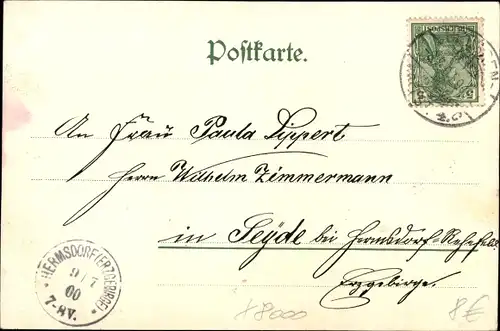 Postkarte.
REICHSPOST
5 5
An Frau Paula Lippert
Herrn Wilhelm Zimmermann
in Seyde bei Hermsdorf-Rehefeld
Erzgebirge.
* HERMSDORF (ERZGEBIRGE) *
9/7
00
7-8V.
x8000
8€